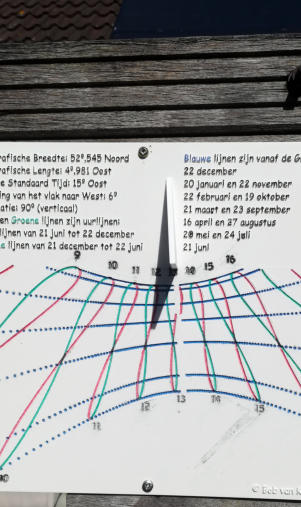 afische Breedte: 52º,545 Noord
afische Lengte: 4º,981 Oost
e Standaard Tijd: 15º Oost
ing van het vlak naar West: 6º
atie: 90º (verticaal)
en Groene lijnen zijn uurlijnen:
lijnen van 21 juni tot 22 december
e lijnen van 21 december tot 22 juni
Blauwe lijnen zijn vanaf de G
22 december
20 januari en 22 november
22 februari en 19 oktober
21 maart en 23 september
16 april en 27 augustus
20 mei en 24 juli
21 juni
9 10 11 12 13 14 15 16
10 11 12 13 14 15
© Bob van